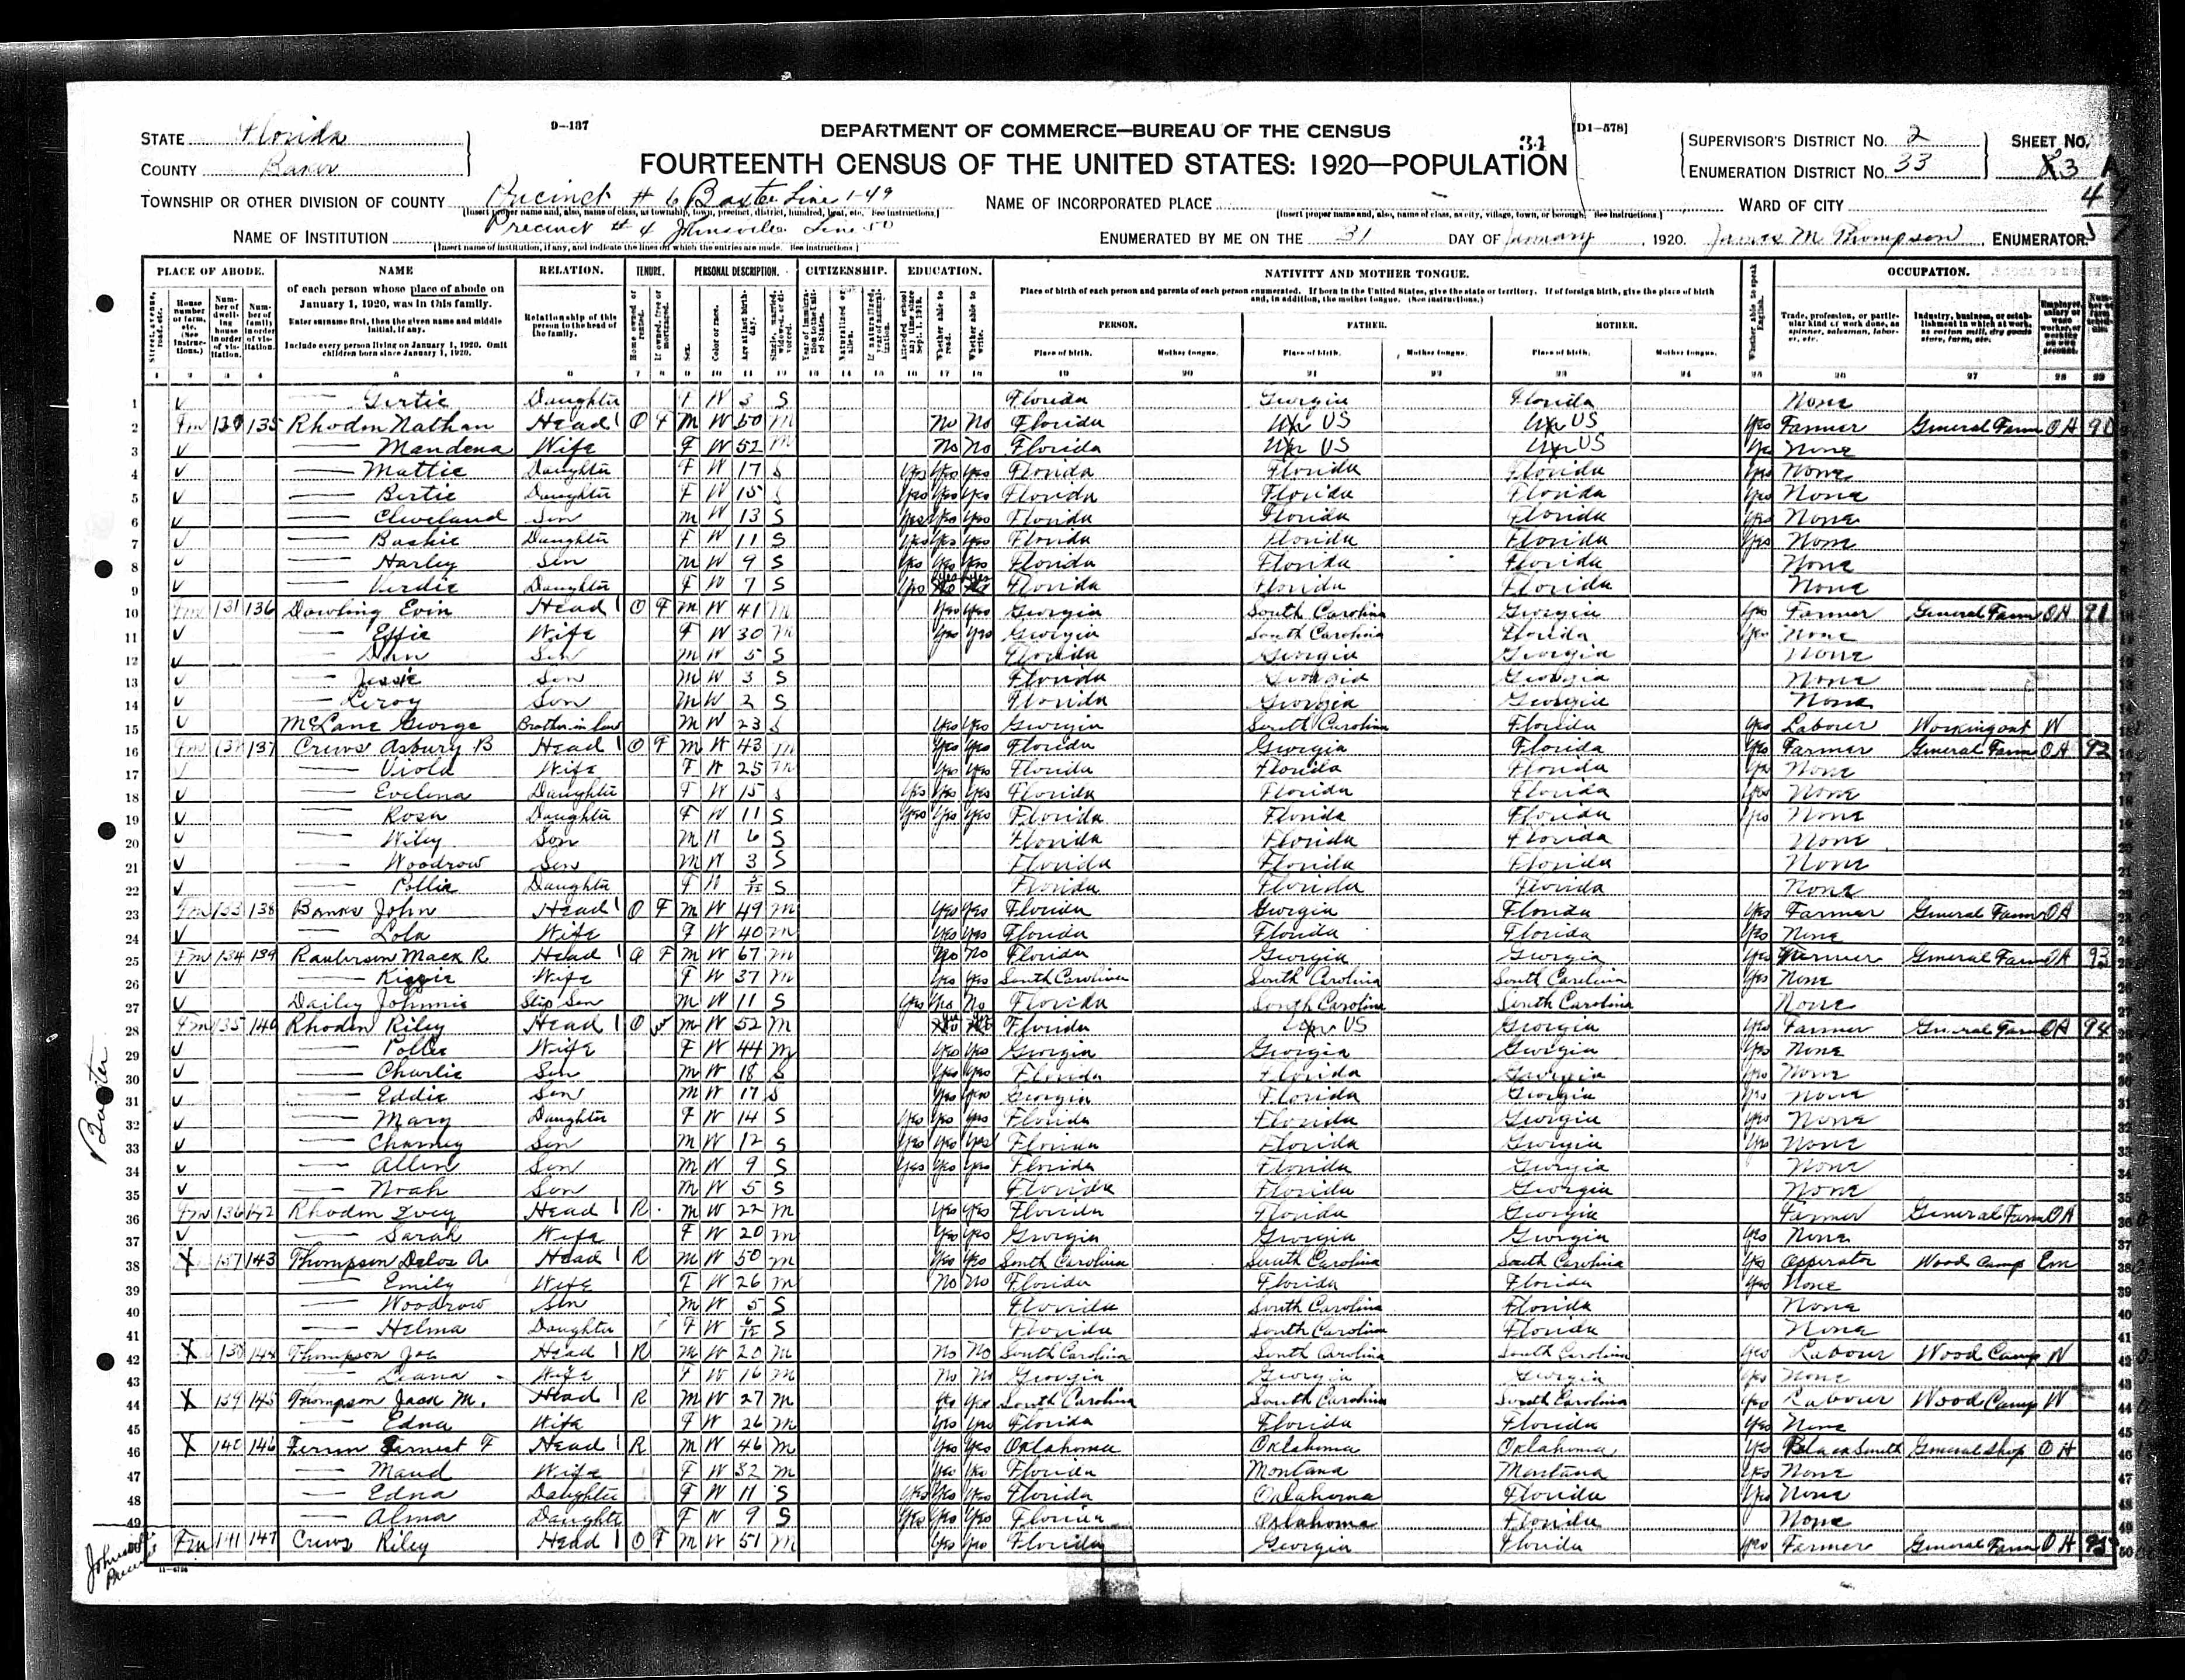 9-137
DEPARTMENT OF COMMERCE—BUREAU OF THE CENSUS
[D1-578]
34
STATE Florida
COUNTY Baker
FOURTEENTH CENSUS OF THE UNITED STATES: 1920—POPULATION
SUPERVISOR'S DISTRICT No. 2
ENUMERATION DISTRICT No. 33
SHEET No. 3 A
TOWNSHIP OR OTHER DIVISION OF COUNTY Precinct # 6 Baxter Line 1-49
Precinct # 4 Johnsville Line 50
NAME OF INCORPORATED PLACE
WARD OF CITY
NAME OF INSTITUTION
ENUMERATED BY ME ON THE 31 DAY OF January, 1920. James M Thompson, ENUMERATOR
PLACE OF ABODE. NAME RELATION. TENURE. PERSONAL DESCRIPTION. CITIZENSHIP. EDUCATION. NATIVITY AND MOTHER TONGUE. OCCUPATION.
of each person whose place of abode on January 1, 1920, was in this family.
Enter surname first, then the given name and middle initial, if any.
Include every person living on January 1, 1920. Omit children born since January 1, 1920.
Relationship of this person to the head of the family.
Place of birth of each person and parents of each person enumerated. If born in the United States, give the state or territory. If of foreign birth, give the place of birth and, in addition, the mother tongue. (See instructions.)
PERSON. FATHER. MOTHER.
Place of birth. Mother tongue. Place of birth. Mother tongue. Place of birth. Mother tongue.
1 Gertie Daughter F W 3 S Florida Georgia Florida None
2 Fm 135 Rhoden Nathan Head 1 O F M W 50 M No No Florida US US Yes Farmer General Farm OA 90
3 Mandena Wife F W 52 M No No Florida US US Yes None
4 Mattie Daughter F W 17 S Yes Yes Yes Florida Florida Florida Yes None
5 Bertie Daughter F W 15 S Yes Yes Yes Florida Florida Florida Yes None
6 Cleveland Son M W 13 S Yes Yes Yes Florida Florida Florida Yes None
7 Daughter F W 11 S Yes Yes Yes Florida Florida Florida Yes None
8 Harley Son M W 9 S Yes Yes Yes Florida Florida Florida None
9 Verdie Daughter F W 7 S Yes Yes Yes Florida Florida Florida None
10 Fm 131 136 Dowling Evin Head 1 O F M W 41 M Yes Yes Georgia South Carolina Georgia Yes Farmer General Farm OA 91
11 Effie Wife F W 30 M Yes Yes Georgia South Carolina Florida Yes None
12 Son M W 5 S Florida Georgia Georgia None
13 Jessie Son M W 3 S Florida Georgia Georgia None
14 Leroy Son M W 2 S Florida Georgia Georgia None
15 McLane George Brother in law M W 23 S Yes Yes Georgia South Carolina Florida Yes Labourer Working out W
16 Fm 132 137 Crews Asbury B Head 1 O F M W 43 M Yes Yes Florida Georgia Florida Yes Farmer General Farm OA 92
17 Viola Wife F W 25 M Yes Yes Florida Florida Florida Yes None
18 Evelena Daughter F W 15 S Yes Yes Yes Florida Florida Florida Yes None
19 Rosa Daughter F W 11 S Yes Yes Yes Florida Florida Florida Yes None
20 Wiley Son M W 6 S Florida Florida Florida None
21 Woodrow Son M W 3 S Florida Florida Florida None
22 Pollie Daughter F W 5/12 S Florida Florida Florida None
23 Fm 133 138 John Head 1 O F M W 49 M Yes Yes Florida Georgia Florida Yes Farmer General Farm OA
24 Lola Wife F W 40 M Yes Yes Florida Florida Florida Yes None
25 Fm 134 139 Raulerson Mack R Head 1 O F M W 67 M No No Florida Georgia Georgia Yes Farmer General Farm OA 93
26 Kizzie Wife F W 37 M Yes Yes South Carolina South Carolina South Carolina Yes None
27 Dailey Johnnie Step Son M W 11 S Yes Yes No Florida South Carolina South Carolina None
28 Fm 135 140 Rhoden Riley Head 1 O M W 52 M Florida US Georgia Yes Farmer General Farm OA 94
29 Pollie Wife F W 44 M Yes Yes Georgia Georgia Georgia Yes None
30 Charlie Son M W 18 S Yes Yes Florida Florida Georgia Yes None
31 Eddie Son M W 17 S Yes Yes Georgia Florida Georgia Yes None
32 Mary Daughter F W 14 S Yes Yes Yes Florida Florida Georgia Yes None
33 Charney Son M W 12 S Yes Yes Yes Florida Florida Georgia Yes None
34 Allen Son M W 9 S Yes Yes Yes Florida Florida Georgia None
35 Noah Son M W 5 S Florida Florida Georgia None
36 Fm 136 142 Rhoden Head 1 R M W 22 M Yes Yes Florida Florida Georgia Farmer General Farm OA
37 Sarah Wife F W 20 M Yes Yes Georgia Georgia Georgia Yes None
38 X 137 143 Thompson Delos A. Head 1 R M W 50 M Yes Yes South Carolina South Carolina South Carolina Yes Opperator Wood Camp Em
39 Emily Wife F W 26 M No No Florida Florida Florida Yes None
40 Woodrow Son M W 5 S Florida South Carolina Florida None
41 Helma Daughter F W S Florida South Carolina Florida None
42 X 138 144 Thompson Joe Head 1 R M W 20 M No No South Carolina South Carolina South Carolina Yes Labourer Wood Camp W
43 Leana Wife F W 16 M No No Georgia Georgia Georgia Yes None
44 X 139 145 Thompson Jack M. Head 1 R M W 27 M Yes Yes South Carolina South Carolina South Carolina Yes Labourer Wood Camp W
45 Edna Wife F W 26 M Yes Yes Florida Florida Florida Yes None
46 X 140 146 Ernest F Head 1 R M W 46 M Yes Yes Oklahoma Oklahoma Oklahoma Yes Blacksmith General Shop OA
47 Maud Wife F W 32 M Yes Yes Florida Montana Montana Yes None
48 Edna Daughter F W 11 S Yes Yes Yes Florida Oklahoma Florida Yes None
49 Alma Daughter F W 9 S Yes Yes Yes Florida Oklahoma Florida None
50 Fm 141 147 Crews Riley Head 1 O F M W 51 M Yes Yes Florida Georgia Florida Yes Farmer General Farm OA 95
Baxter
11-6726